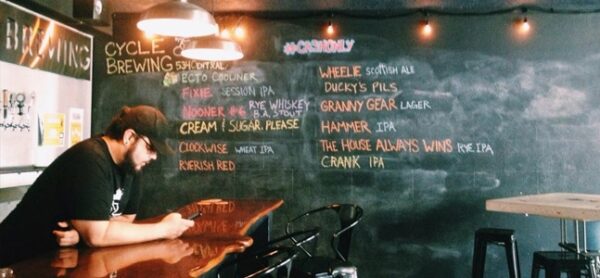 BREWING
CYCLE
BREWING
#CASHONLY
ECTO COOLINER
FIXIE SESSION IPA
NOONER #6 RYE WHISKEY
B.A. STOUT
CREAM & SUGAR, PLEASE
CLOCKWISE WHEAT IPA
RYERISH RED
WHEELIE SCOTTISH ALE
DUCKY'S PILS
GRANNY GEAR LAGER
HAMMER IPA
THE HOUSE ALWAYS WINS RYE IPA
CRANK IPA